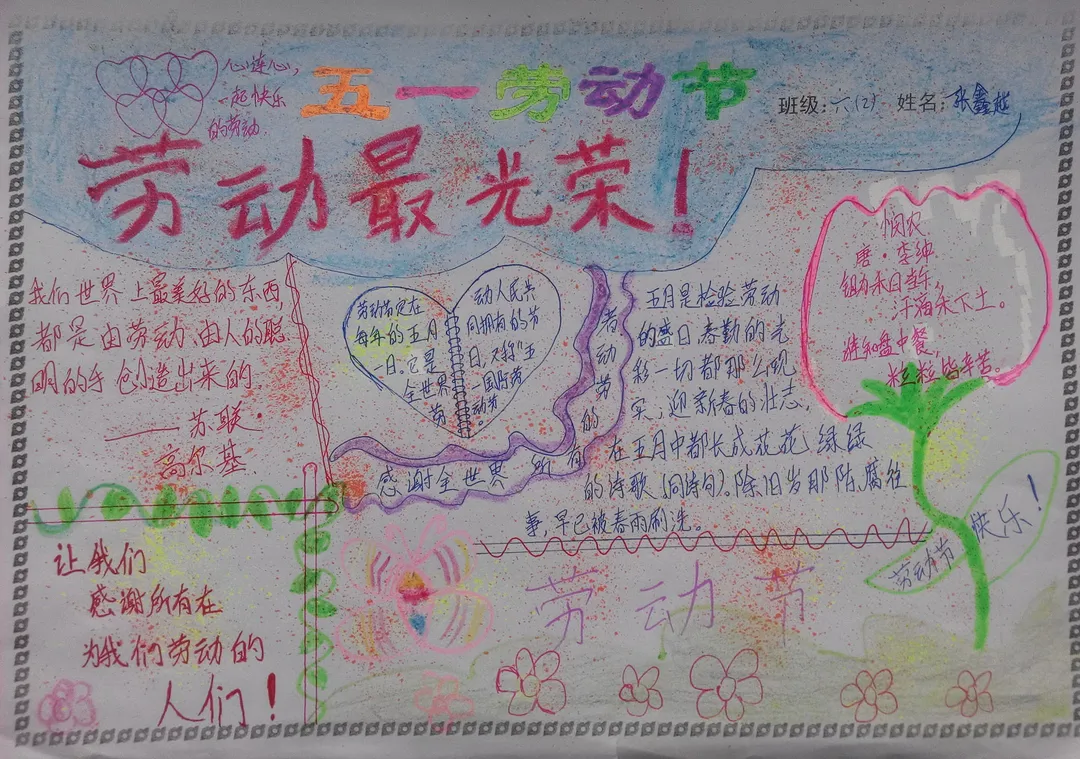 心连心，
一起快乐
的劳动.
五一劳动节
班级：六(2) 姓名：张鑫越
劳动最光荣！
我们世界上最美好的东西，
都是由劳动、由人的聪
明的手创造出来的
——苏联·
高尔基
劳动节定在
每年的五月
一日。它是
全世界
劳
动人民共
同拥有的节
日，又称"五
一国际劳
动节。
感谢全世界所有的劳动者
五月是检验劳动
的盛日，春勤的光
彩一切都那么现
实；迎新春的壮志，
在五月中都长成花花绿绿
的诗歌（同诗句）。除旧岁那陈、腐往
事早已被春雨刷洗。
悯农
唐·李绅
锄禾日当午，
汗滴禾下土。
谁知盘中餐，
粒粒皆辛苦。
劳动节快乐！
让我们
感谢所有在
为我们劳动的
人们！
劳动节